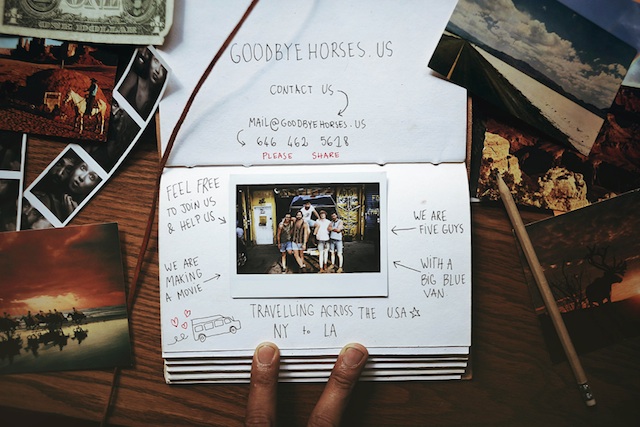 ONE DOLLAR
GOODBYEHORSES.US
CONTACT US
MAIL@GOODBYEHORSES.US
646 462 5618
PLEASE SHARE
FEEL FREE
TO JOIN US
& HELP US
WE ARE
MAKING
A MOVIE
WE ARE
FIVE GUYS
WITH A
BIG BLUE
VAN
TRAVELLING ACROSS THE USA
NY to LA